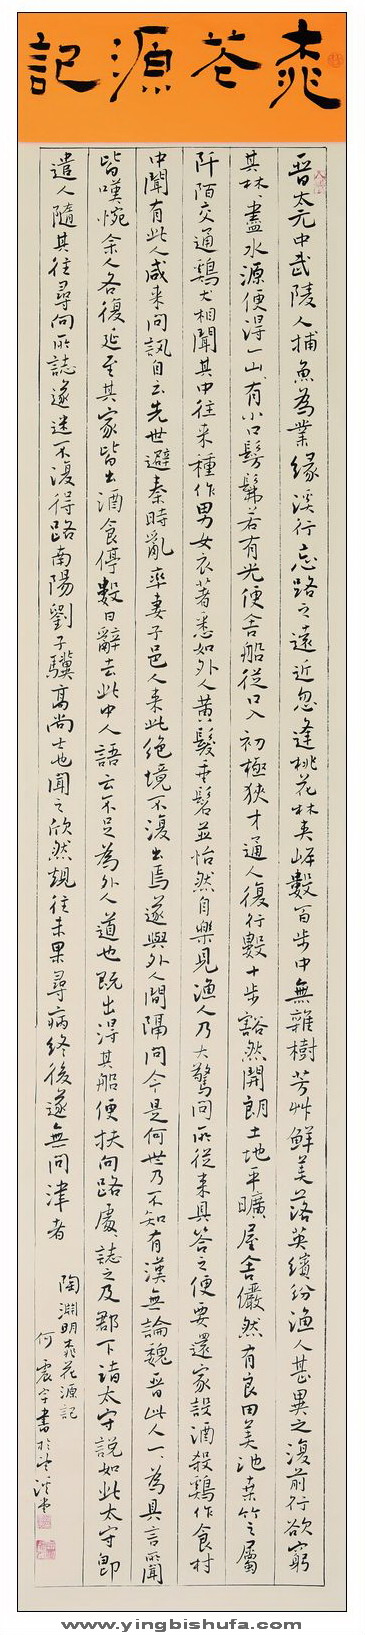 桃花源記
晉太元中武陵人捕魚為業緣溪行忘路之遠近忽逢桃花林夾岸數百步中無雜樹芳艸鮮美落英繽紛漁人甚異之復前行欲窮
其林、盡水源便得一山、有小口髣髴若有光便舍船從口入初極狹才通人復行數十步豁然開朗土地平曠屋舍儼然有良田美池桑竹之屬
阡陌交通鷄犬相聞其中往來種作男女衣著悉如外人黃髮垂髫並怡然自樂見漁人乃大驚問所從來具答之便要還家設酒殺鷄作食村
中聞有此人咸来問訊自云先世避秦時亂率妻子邑人来此绝境不復出焉遂與外人間隔問今是何世乃不知有漢無論魏晉此人一、為具言所聞
皆嘆惋余人各復延至其家皆出酒食停數日辭去此中人語云不足為外人道也既出得其船便扶向路處、誌之及郡下詣太守說如此太守即
遣人隨其往尋向所誌遂迷不復得路南陽劉子驥高尚士也聞之欣然規往未果尋病終後遂無問津者
陶淵明桃花源記
何震宇書於
www.yingbishufa.com